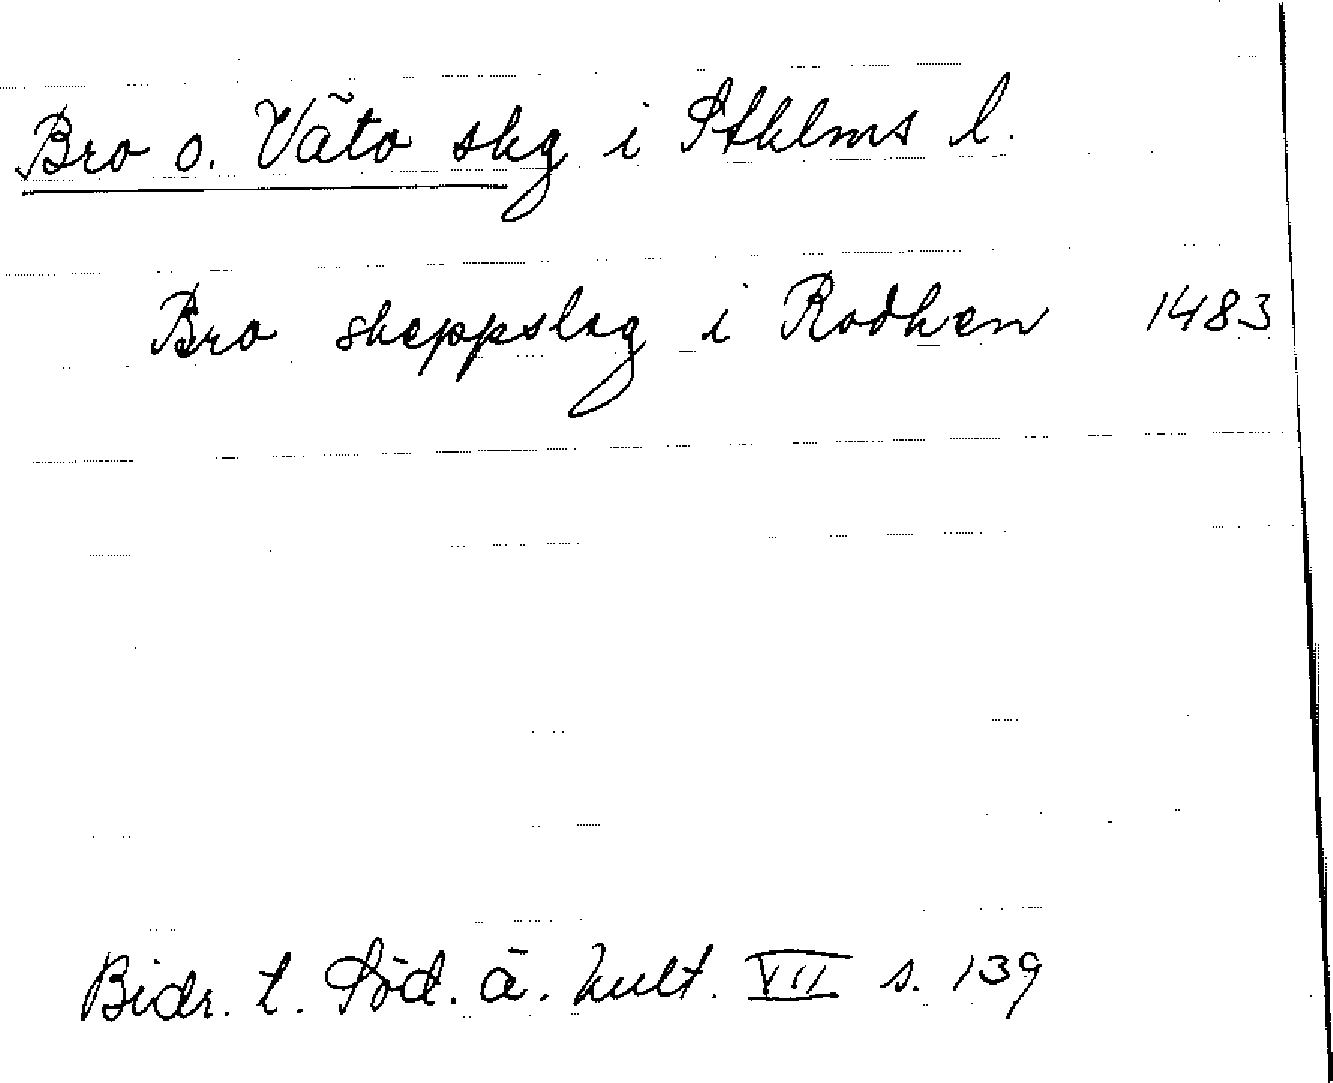 Bro o. Väto skg i Sthlms l.
Bro skeppslag i Rodhen 1483
Bidr. t. Söd. ä. kult. VII s. 139